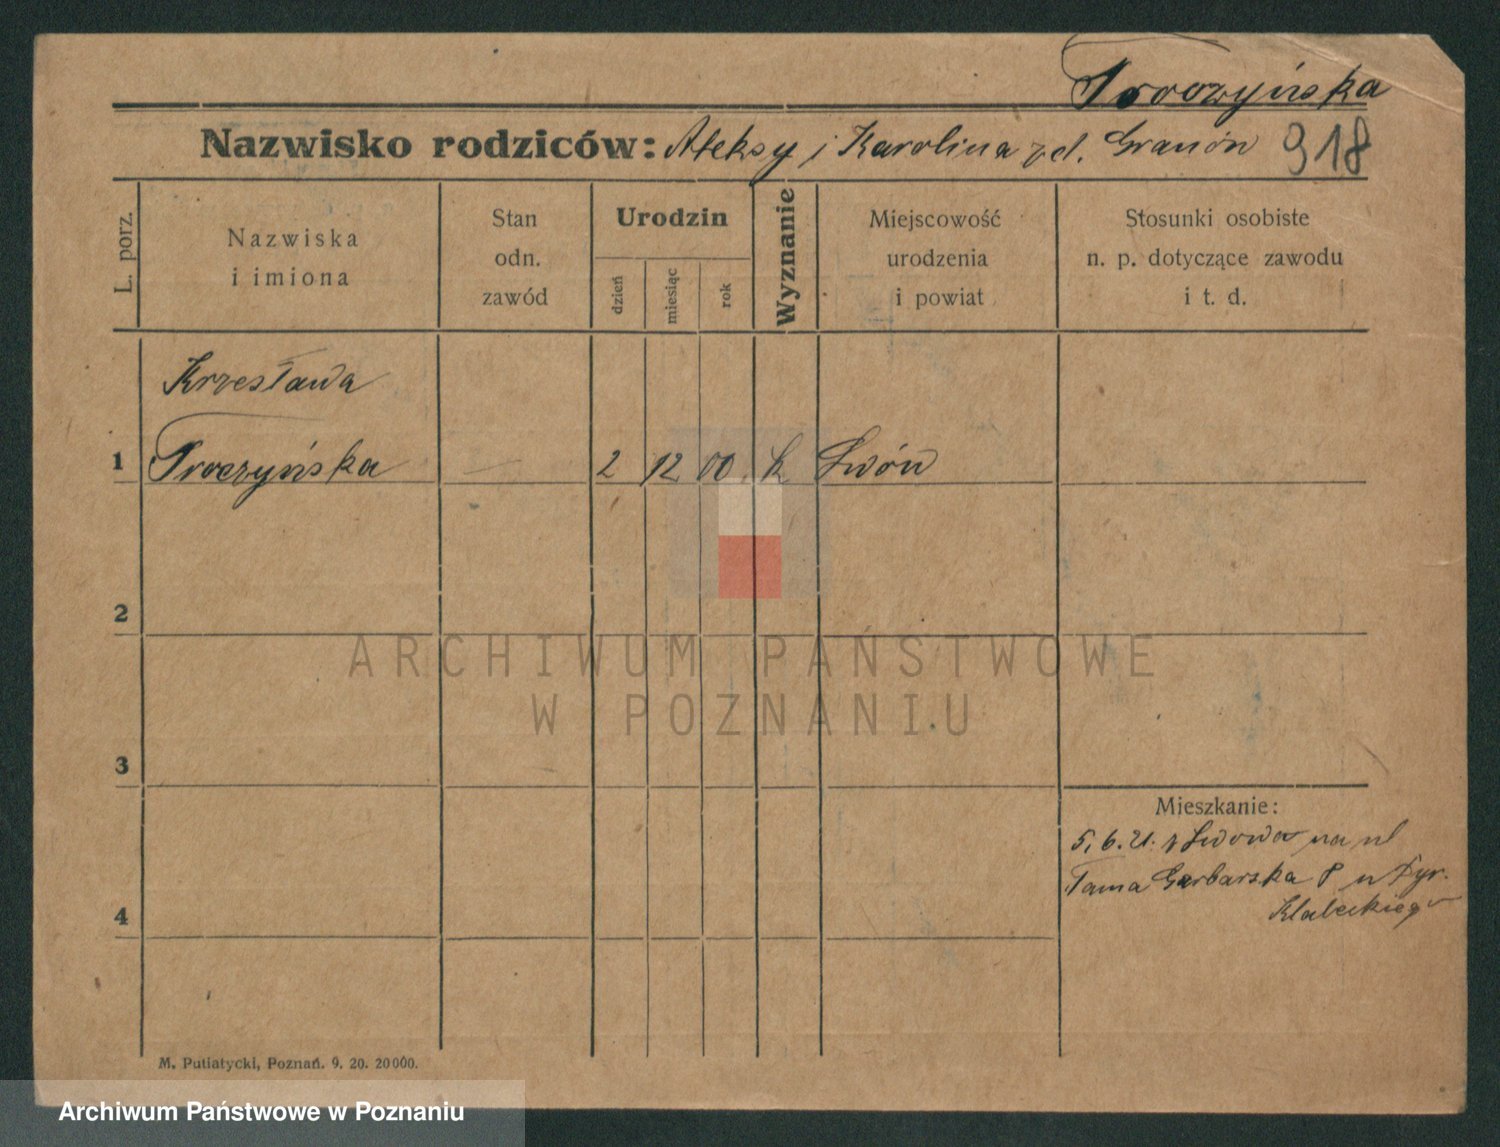 Troczyńska
Nazwisko rodziców: Aleksy i Karolina zd. 918
L. porz.
Nazwiska
i imiona
Stan
odn.
zawód
Urodzin
dzień
miesiąc
rok
Wyznanie
Miejscowość
urodzenia
i powiat
Stosunki osobiste
n. p. dotyczące zawodu
i t. d.
Krzesława
1 Troczyńska — 2 12 00 k Lwów
2
3
4
Mieszkanie:
5.6.21. z Lwowa na ul
Tama Garbarska 8 u Dyr.
M. Putiatycki, Poznań. 9. 20. 20000.
ARCHIWUM PAŃSTWOWE
W POZNANIU
Archiwum Państwowe w Poznaniu